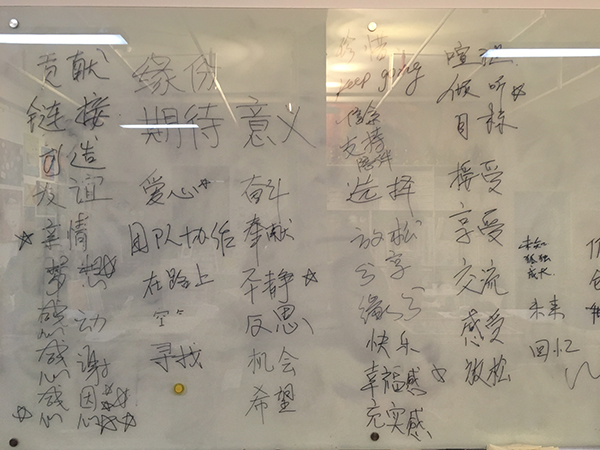 贡献
链接
创造
友谊
亲情
梦想
感动
感谢
感恩
缘份
期待 意义
爱心
团队协作
在路上
寻找
奋斗
奉献
平静
反思
机会
希望
珍惜
keep going
信念
支持
陪伴
选择
放松
分享
缘分
快乐
幸福感
充实感
倾听
目标
接受
享受
交流
感受
放松
未知
成长
未来
回忆